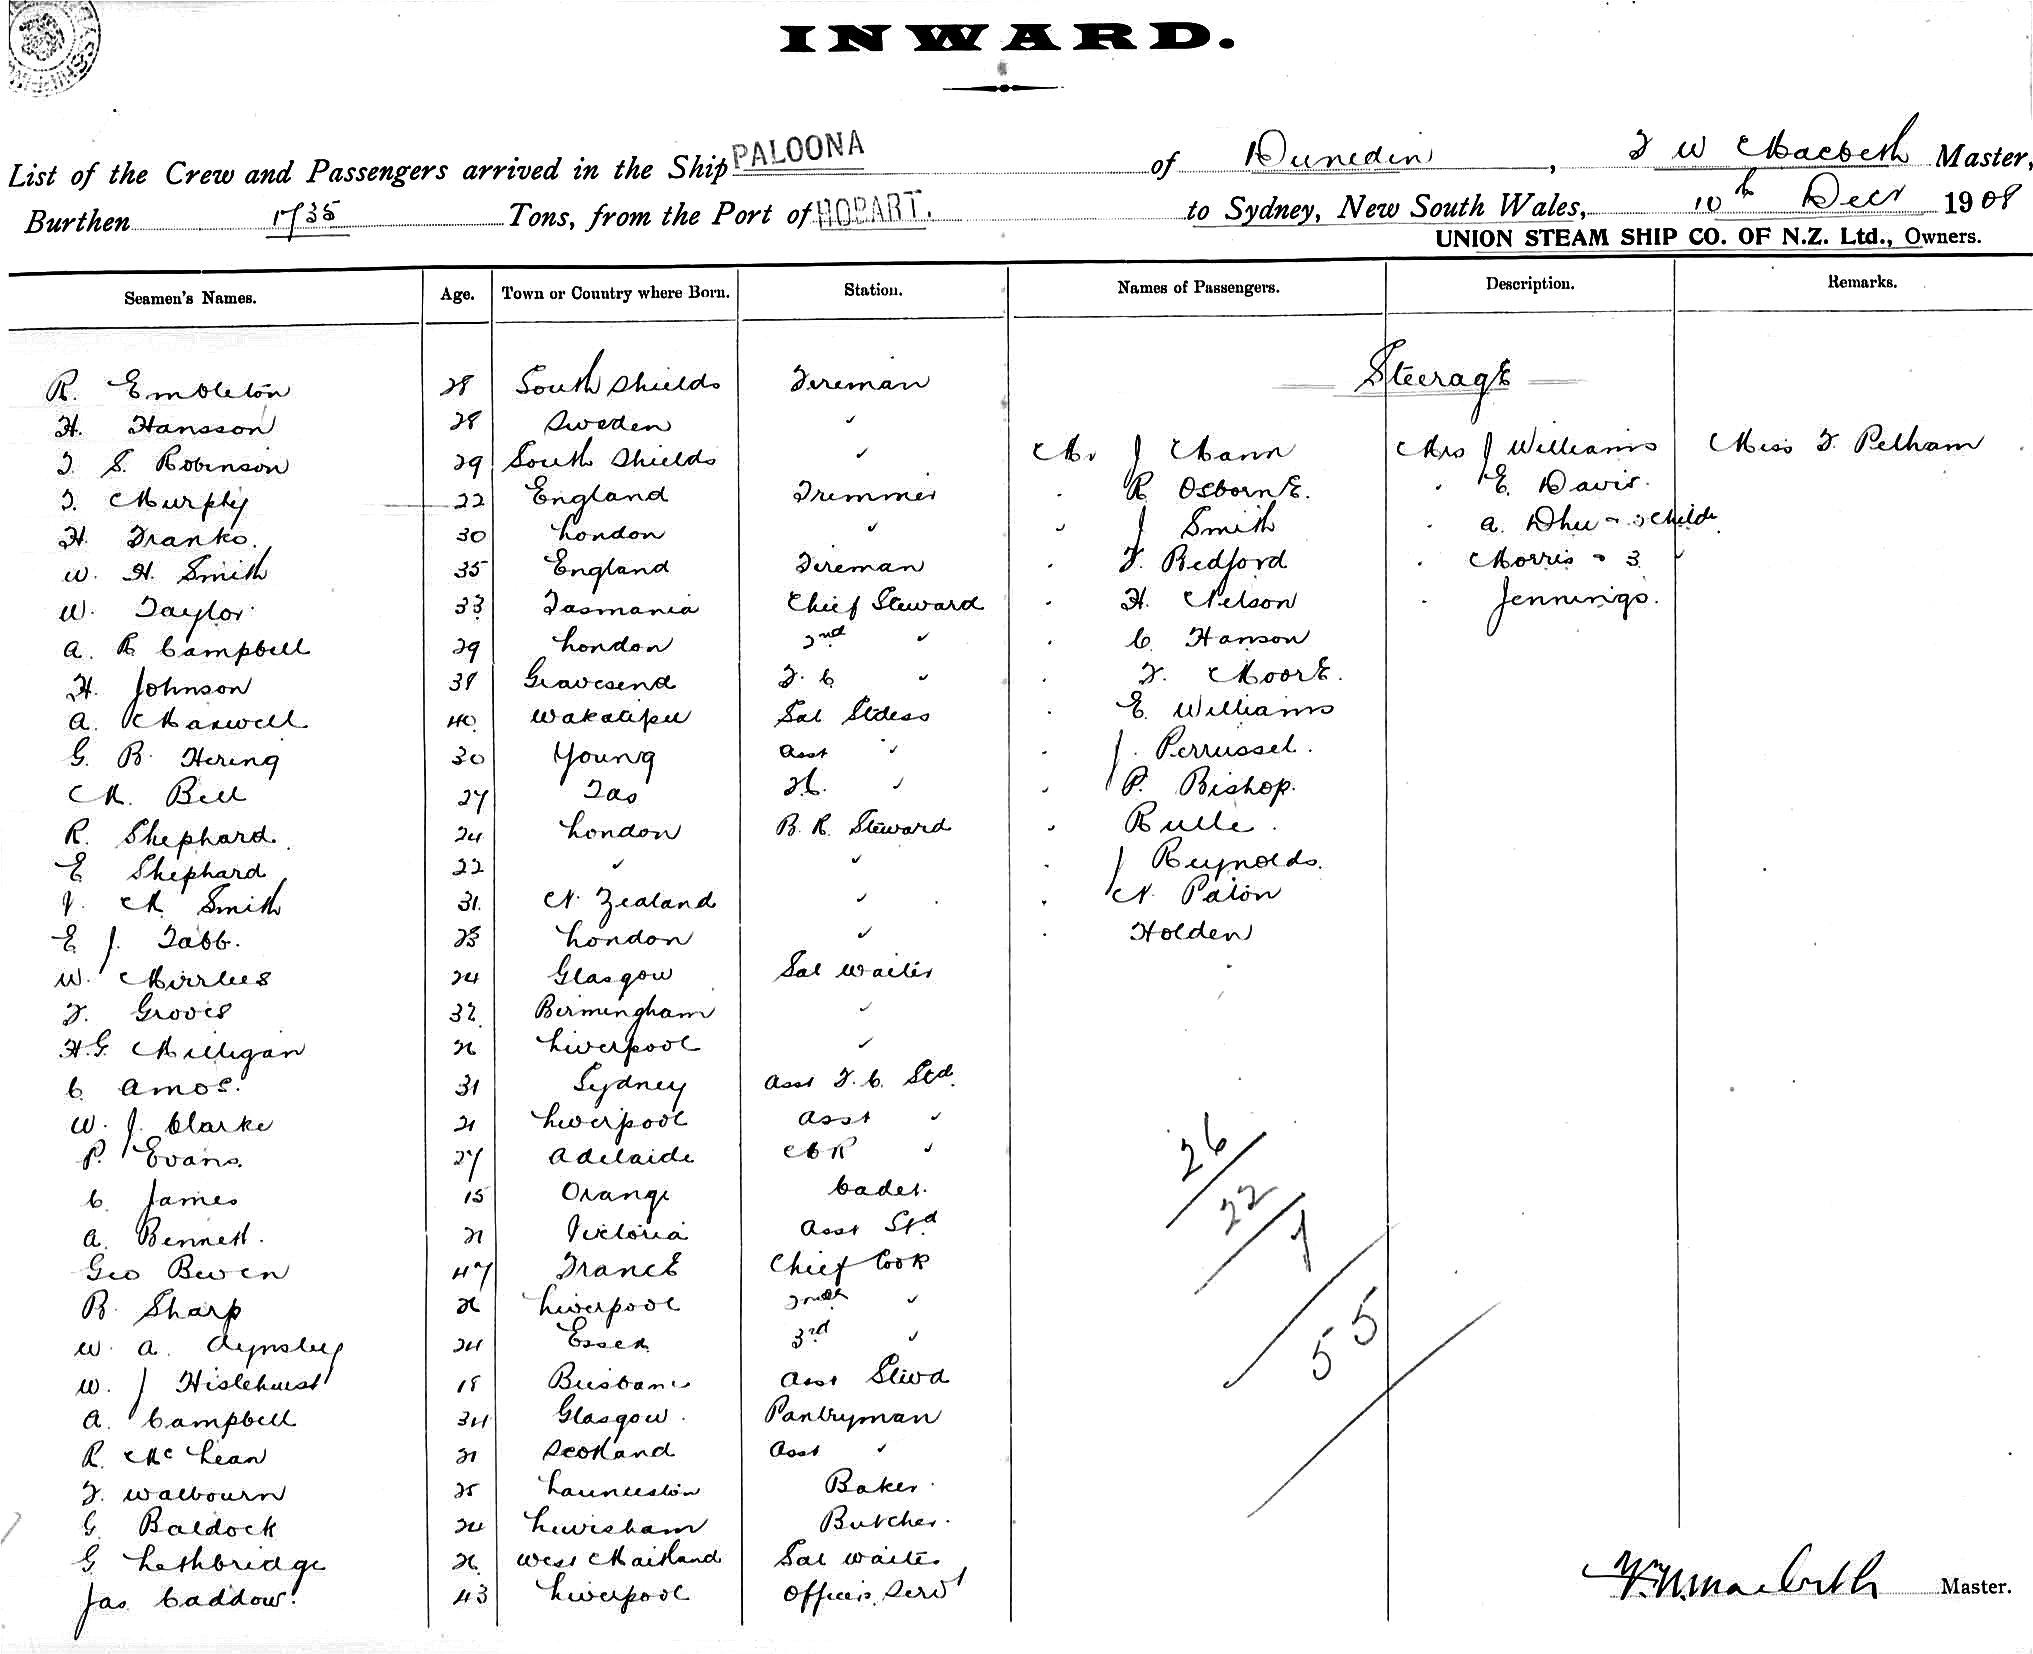 INWARD.
List of the Crew and Passengers arrived in the Ship PALOONA of Dunedin, F W Macbeth Master,
Burthen 1735 Tons, from the Port of HOBART. to Sydney, New South Wales, 10th Decr 1908
UNION STEAM SHIP CO. OF N.Z. Ltd., Owners.
Seamen's Names. Age. Town or Country where Born. Station. Names of Passengers. Description. Remarks.
Steerage
R. Embleton 28 South Shields Fireman
H. Hansson 28 Sweden "
T. S. Robinson 29 South Shields " Mr J Mann Mrs J Williams Miss F. Pelham
T. Murphy 22 England Trimmer " R Osborne. " E. Davis.
H. Franks. 30 London " " J Smith " A. Dhu - 3 Childn
W. H. Smith 35 England Fireman " F. Bedford " Morris - 3 "
W. Taylor 33 Tasmania Chief Steward " H. Nelson " Jennings.
A. R Campbell 29 London 2nd " " C Hanson
H. Johnson 38 Gravesend F. C. " " F. Moore.
A. Maxwell 40 Wakatipu Sal Stdess " E. Williams
G. B. Hering 30 Young Asst " " J. Perrussel.
M. Bell 27 Tas " " P. Bishop.
R. Shephard 24 London B. R. Steward " Rulle.
E Shephard 22 " " " J Reynolds.
J. M Smith 31 N. Zealand " " N. Paton
E J. Tabb. 23 London " " Holden
W. Mirrlees 24 Glasgow Sal Waiter
F. Groves 32 Birmingham "
H. G. Milligan 26 Liverpool "
C. Amos. 31 Sydney Asst F. C. Std.
W. J. Clarke 21 Liverpool Asst "
P. Evans. 27 Adelaide "
C. James 15 Orange Cadet.
A. Bennett. 21 Victoria Asst Std
Geo Bewen 47 France Chief Cook
B. Sharp 26 Liverpool 2nd "
W. A. Aynsley 24 Essex 3rd "
W. J Hislehurst 18 Brisbane Asst Stwd
A. Campbell 34 Glasgow. Pantryman
R. McLean 21 Scotland Asst "
F. Walbourn 25 Launceston Baker.
G. Baldock 24 Lewisham Butcher.
G Lethbridge 26. West Maitland Sal Waiter
Jas Caddow. 43 Liverpool Officers Servt
26
22
7
55
F. W. Macbeth Master.